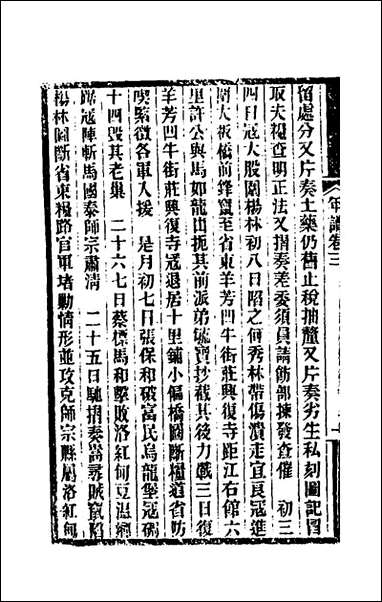 年譜卷三
留處分又片奏土藥仍舊止稅抽釐又片奏劣生私刻圖記冒
取夫糧查明正法又摺奏差委須員請飭部揀發查催 初三
四日寇大股圍楊林初八日昭之何秀林帶傷潰走宜良寇進
圍大板橋前鋒竄至省東羊芳凹牛街莊興復寺距江右館六
里許公與馬如龍出扼其前派弟毓寶抄截其後力戰三日復
羊芳凹牛街莊興復寺寇退居十里鋪小偏橋圖斷糧道省防
喫緊徵各軍入援 是月初七日張保和破富民烏龍堡寇碉
十四毀其老巢 二十六七日蔡標馬和擊敗洛紅甸豆温鄉
踞寇陣斬馬國泰師宗肅清 二十五日馳摺奏嵩尋賊竄陷
楊林圖斷省東糧路官軍堵勦情形並攻克師宗縣屬洛紅甸